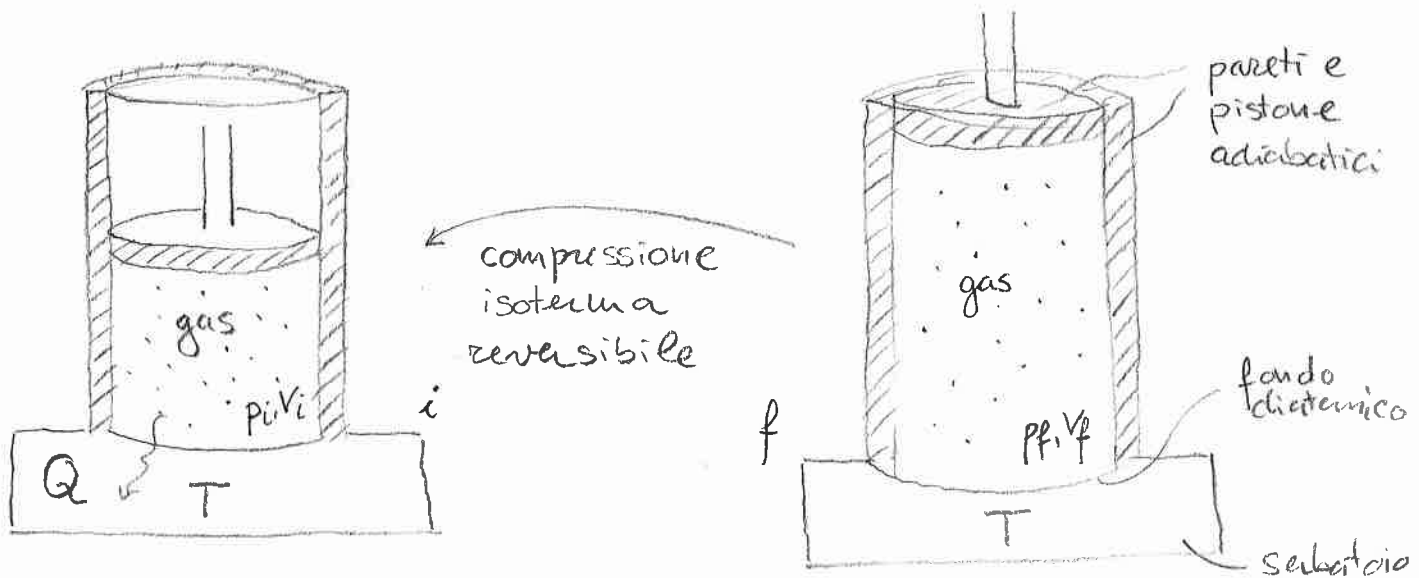 gas
pi,Vi
i
Q
T
compressione
isoterma
reversibile
pareti e
pistone
adiabatici
gas
pf,Vf
f
T
fondo
diatermico
serbatoio